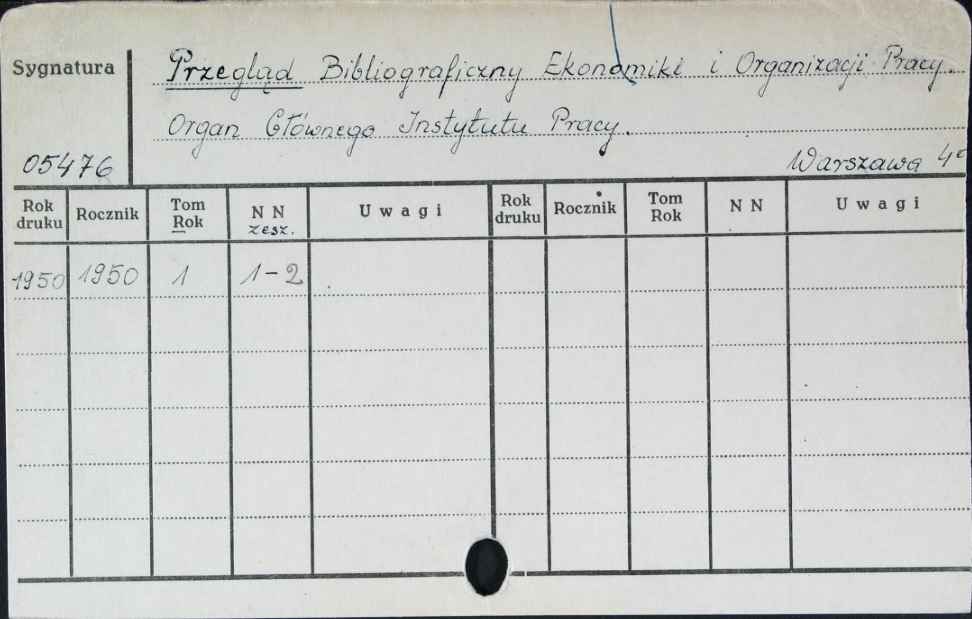 Sygnatura
Przegląd Bibliograficzny Ekonomiki i Organizacji Pracy.
Organ Głównego Instytutu Pracy.
05476
Warszawa 4°
Rok druku Rocznik Tom Rok N N zesz. Uwagi Rok druku Rocznik Tom Rok N N Uwagi
1950 1950 1 1-2